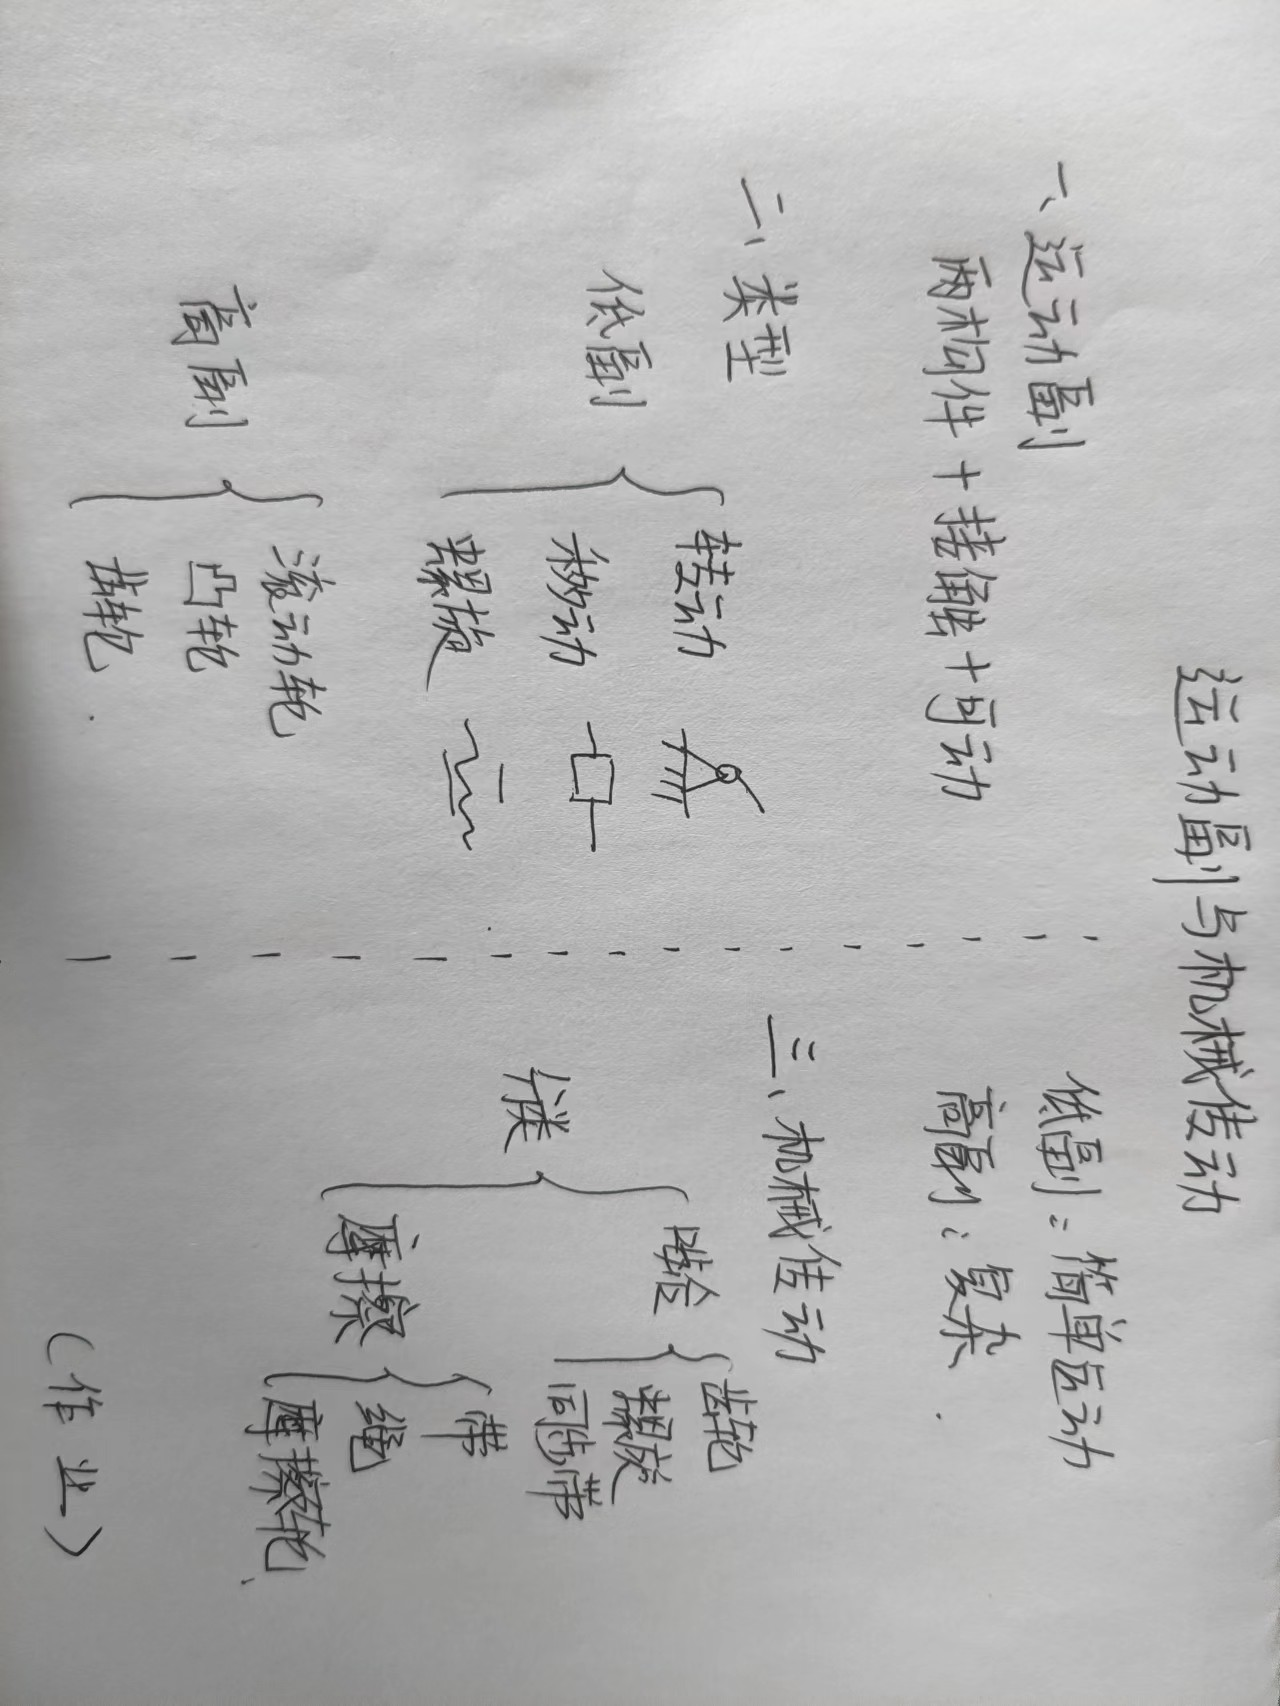 运动副与机械传动
一、运动副
两构件+接触+可动
二、类型
低副
转动
移动
螺旋
高副
滚动轮
凸轮
齿轮
低副:简单运动
高副:复杂
三、机械传动
分类
啮合
齿轮
螺旋
同步带
摩擦
带
绳
摩擦轮
(作业)